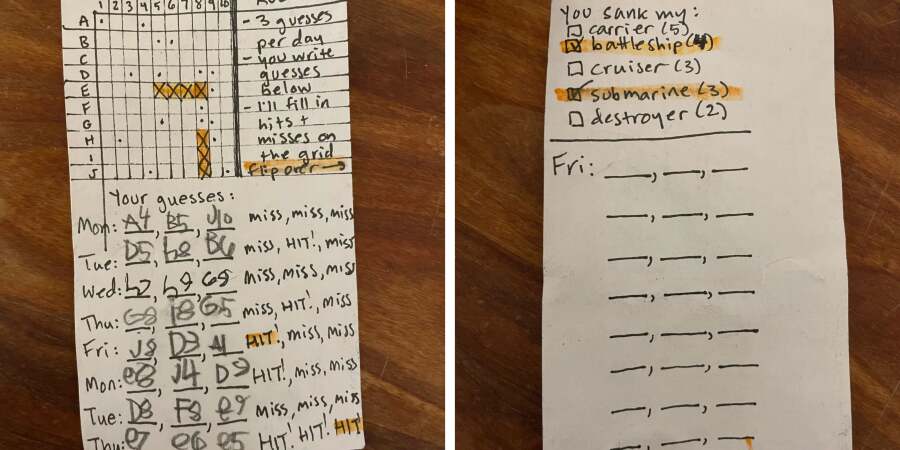 1 2 3 4 5 6 7 8 9 10
A
B
C
D
E
F
G
H
I
J
- 3 guesses
per day
- you write
guesses
below
- I'll fill in
hits +
misses on
the grid
flip over →
Your guesses:
Mon: A4, B5, J10 miss, miss, miss
Tue: D5, h8, B6 miss, HIT!, miss
Wed: h2, h9, G9 miss, miss, miss
Thu: G8, i8, G5 miss, HIT!, miss
Fri: J8, D3, A1 HIT!, miss, miss
Mon: e8, J4, D9 HIT!, miss, miss
Tue: D8, F8, e9 miss, miss, miss
Thu: e7 e6 e5 HIT! HIT! HIT!
You sank my:
carrier (5)
battleship (4)
cruiser (3)
submarine (3)
destroyer (2)
Fri: